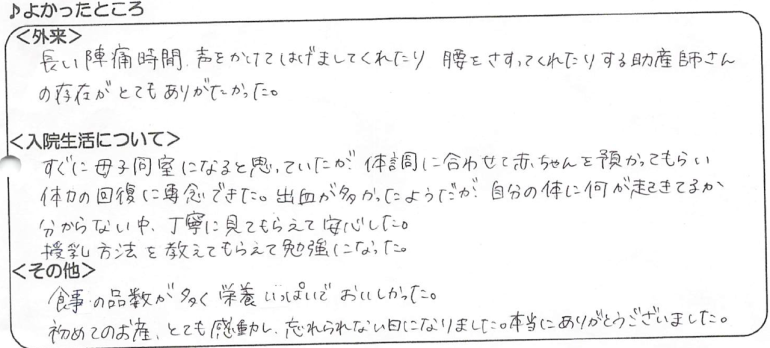 ♪よかったところ
＜外来＞
長い陣痛時間、声をかけてはげましてくれたり 腰をさすってくれたりする助産師さん
の存在がとてもありがたかった。
＜入院生活について＞
すぐに母子同室になると思っていたが、体調に合わせて赤ちゃんを預かってもらい
体力の回復に専念できた。出血が多かったようだが、自分の体に何が起きてるか
分からない中、丁寧に見てもらえて安心した。
授乳方法を教えてもらえて勉強になった。
＜その他＞
食事の品数が多く栄養いっぱいでおいしかった。
初めてのお産、とても感動し、忘れられない日になりました。本当にありがとうございました。